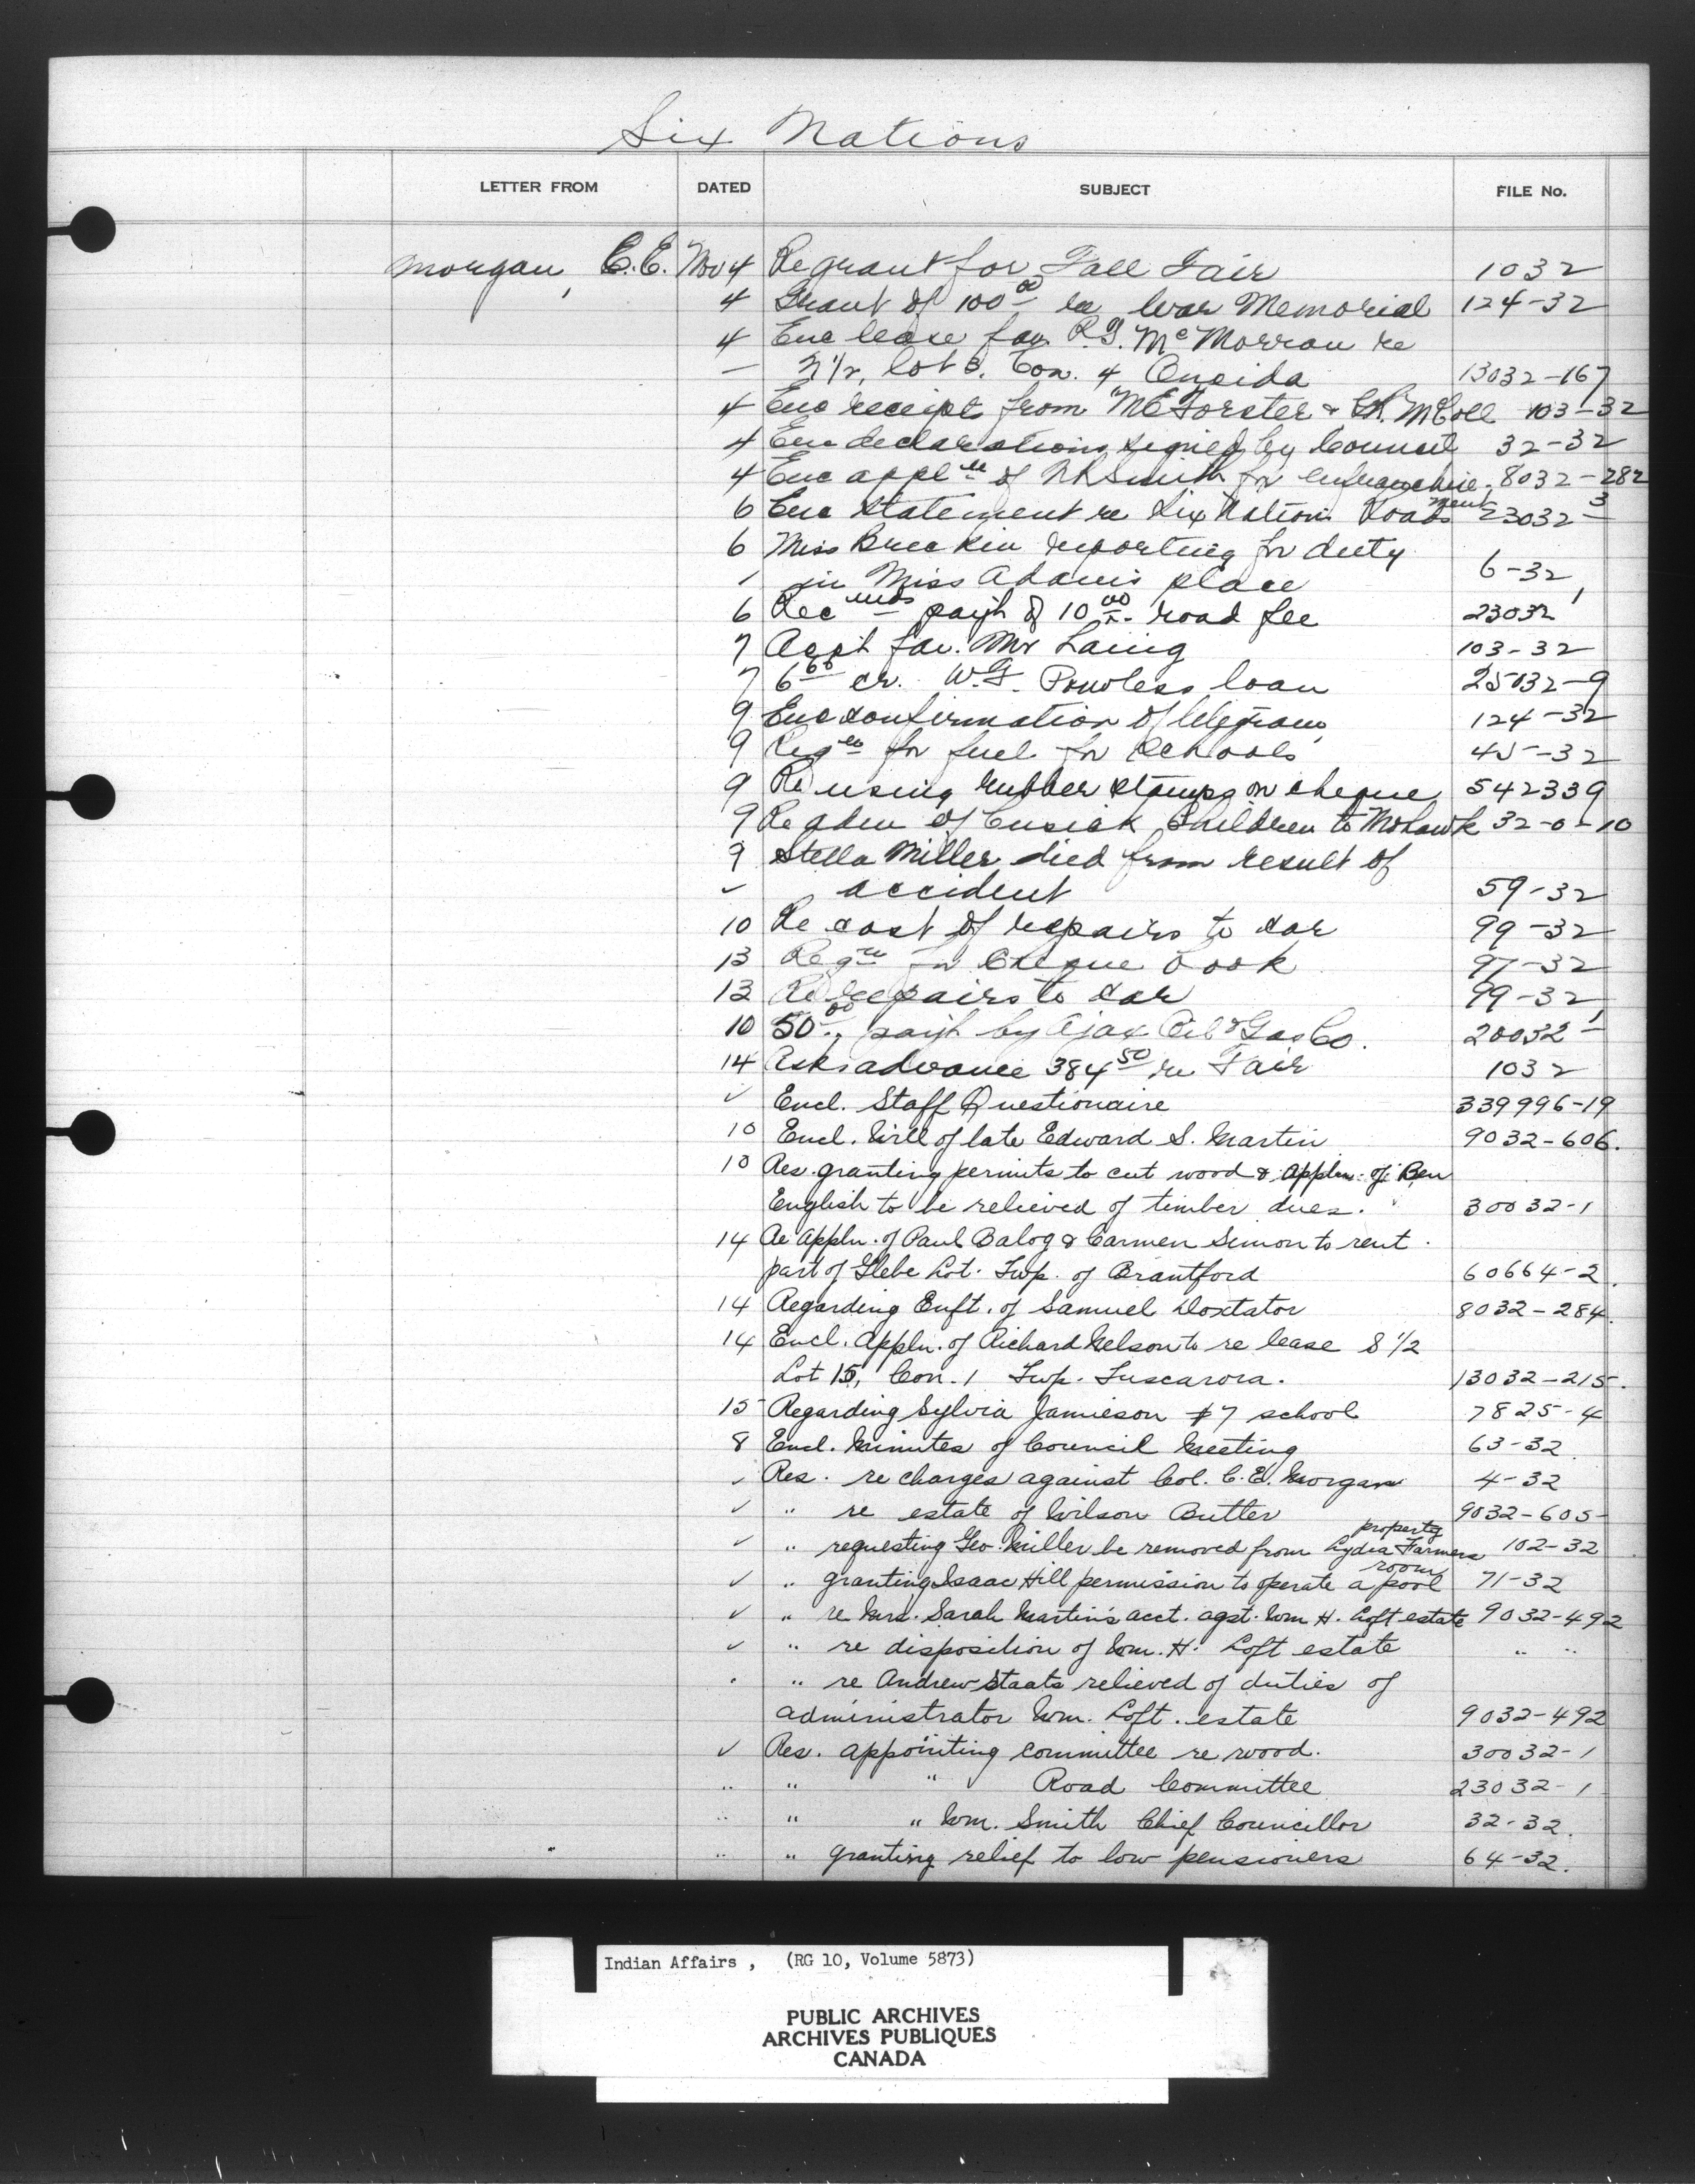 Six Nations
LETTER FROM DATED SUBJECT FILE No.
Morgan, C.E. Nov 4 Re grant for Fall Fair 1032
4 Grant of 100 00 re War Memorial 124-32
4 Enc lease fav. R.G. McMorran re
— N 1/2, lot 3. Con. 4 Oneida 13032-167
4 Enc receipts from McForster & McColl 103-32
4 Enc declarations signed by Council 32-32
4 Enc appln of Smith for enfranchise- 8032-282
6 Enc statement re Six Nations Roads ment 23032-3
6 Miss Brecken reporting for duty
" in Miss Adams place 6-32
6 Rec paym't of 10 00 road fee 23032-1
7 Acct fav. Mr Laing 103-32
7 6 60 cr. W.G. Powless loan 25032-9
9 Enc confirmation of telegram 124-32
9 Reqn for fuel for schools 45-32
9 Re using rubber stamps on cheque 542339
9 Re adm of Cusick Children to Mohawk 32-0-10
9 Stella Miller died from result of
" accident 59-32
10 Re cost of repairs to car 99-32
13 Reqn for Cheque book 97-32
13 Re repairs to car 99-32
10 50 00, paym't by Ajax Oil & Gas Co. 20032-1
14 Asks advance 384 50 re Fair 1032
✓ Encl. Staff Questionaire 339996-19
10 Encl. Will of late Edward S. Martin 9032-606.
10 Res. granting permits to cut wood & Appln. of Ben
English to be relieved of timber dues. 30032-1
14 Re Appln. of Paul Balog & Carmen Simon to rent
part of Glebe Lot. Twp. of Brantford 60664-2.
14 Regarding Enft. of Samuel Doxtator 8032-284.
14 Encl. Appln. of Richard Nelson to re lease S 1/2
Lot 15, Con. 1 Twp. Tuscarora. 13032-215.
15 Regarding Sylvia Jamieson #7 school 7825-4
8 Encl. Minutes of Council Meeting 63-32
✓ Res. re charges against Col. C.E. Morgan 4-32
✓ " re estate of Wilson Butler 9032-605
property
✓ " requesting Geo. Miller be removed from Lydia Farmers 102-32
room
✓ " granting Isaac Hill permission to operate a pool 71-32
✓ " re Mrs. Sarah Martin's acct. agst. Wm H. Loft estate 9032-492
✓ " re disposition of Wm. H. Loft estate " "
" " re Andrew Staats relieved of duties of
administrator Wm. Loft. estate 9032-492
✓ Res. appointing committee re wood. 30032-1
" " " Road Committee 23032-1
" " " Wm. Smith Chief Councillor 32-32.
" " granting relief to low pensioners 64-32.
Indian Affairs , (RG 10, Volume 5873)
PUBLIC ARCHIVES
ARCHIVES PUBLIQUES
CANADA